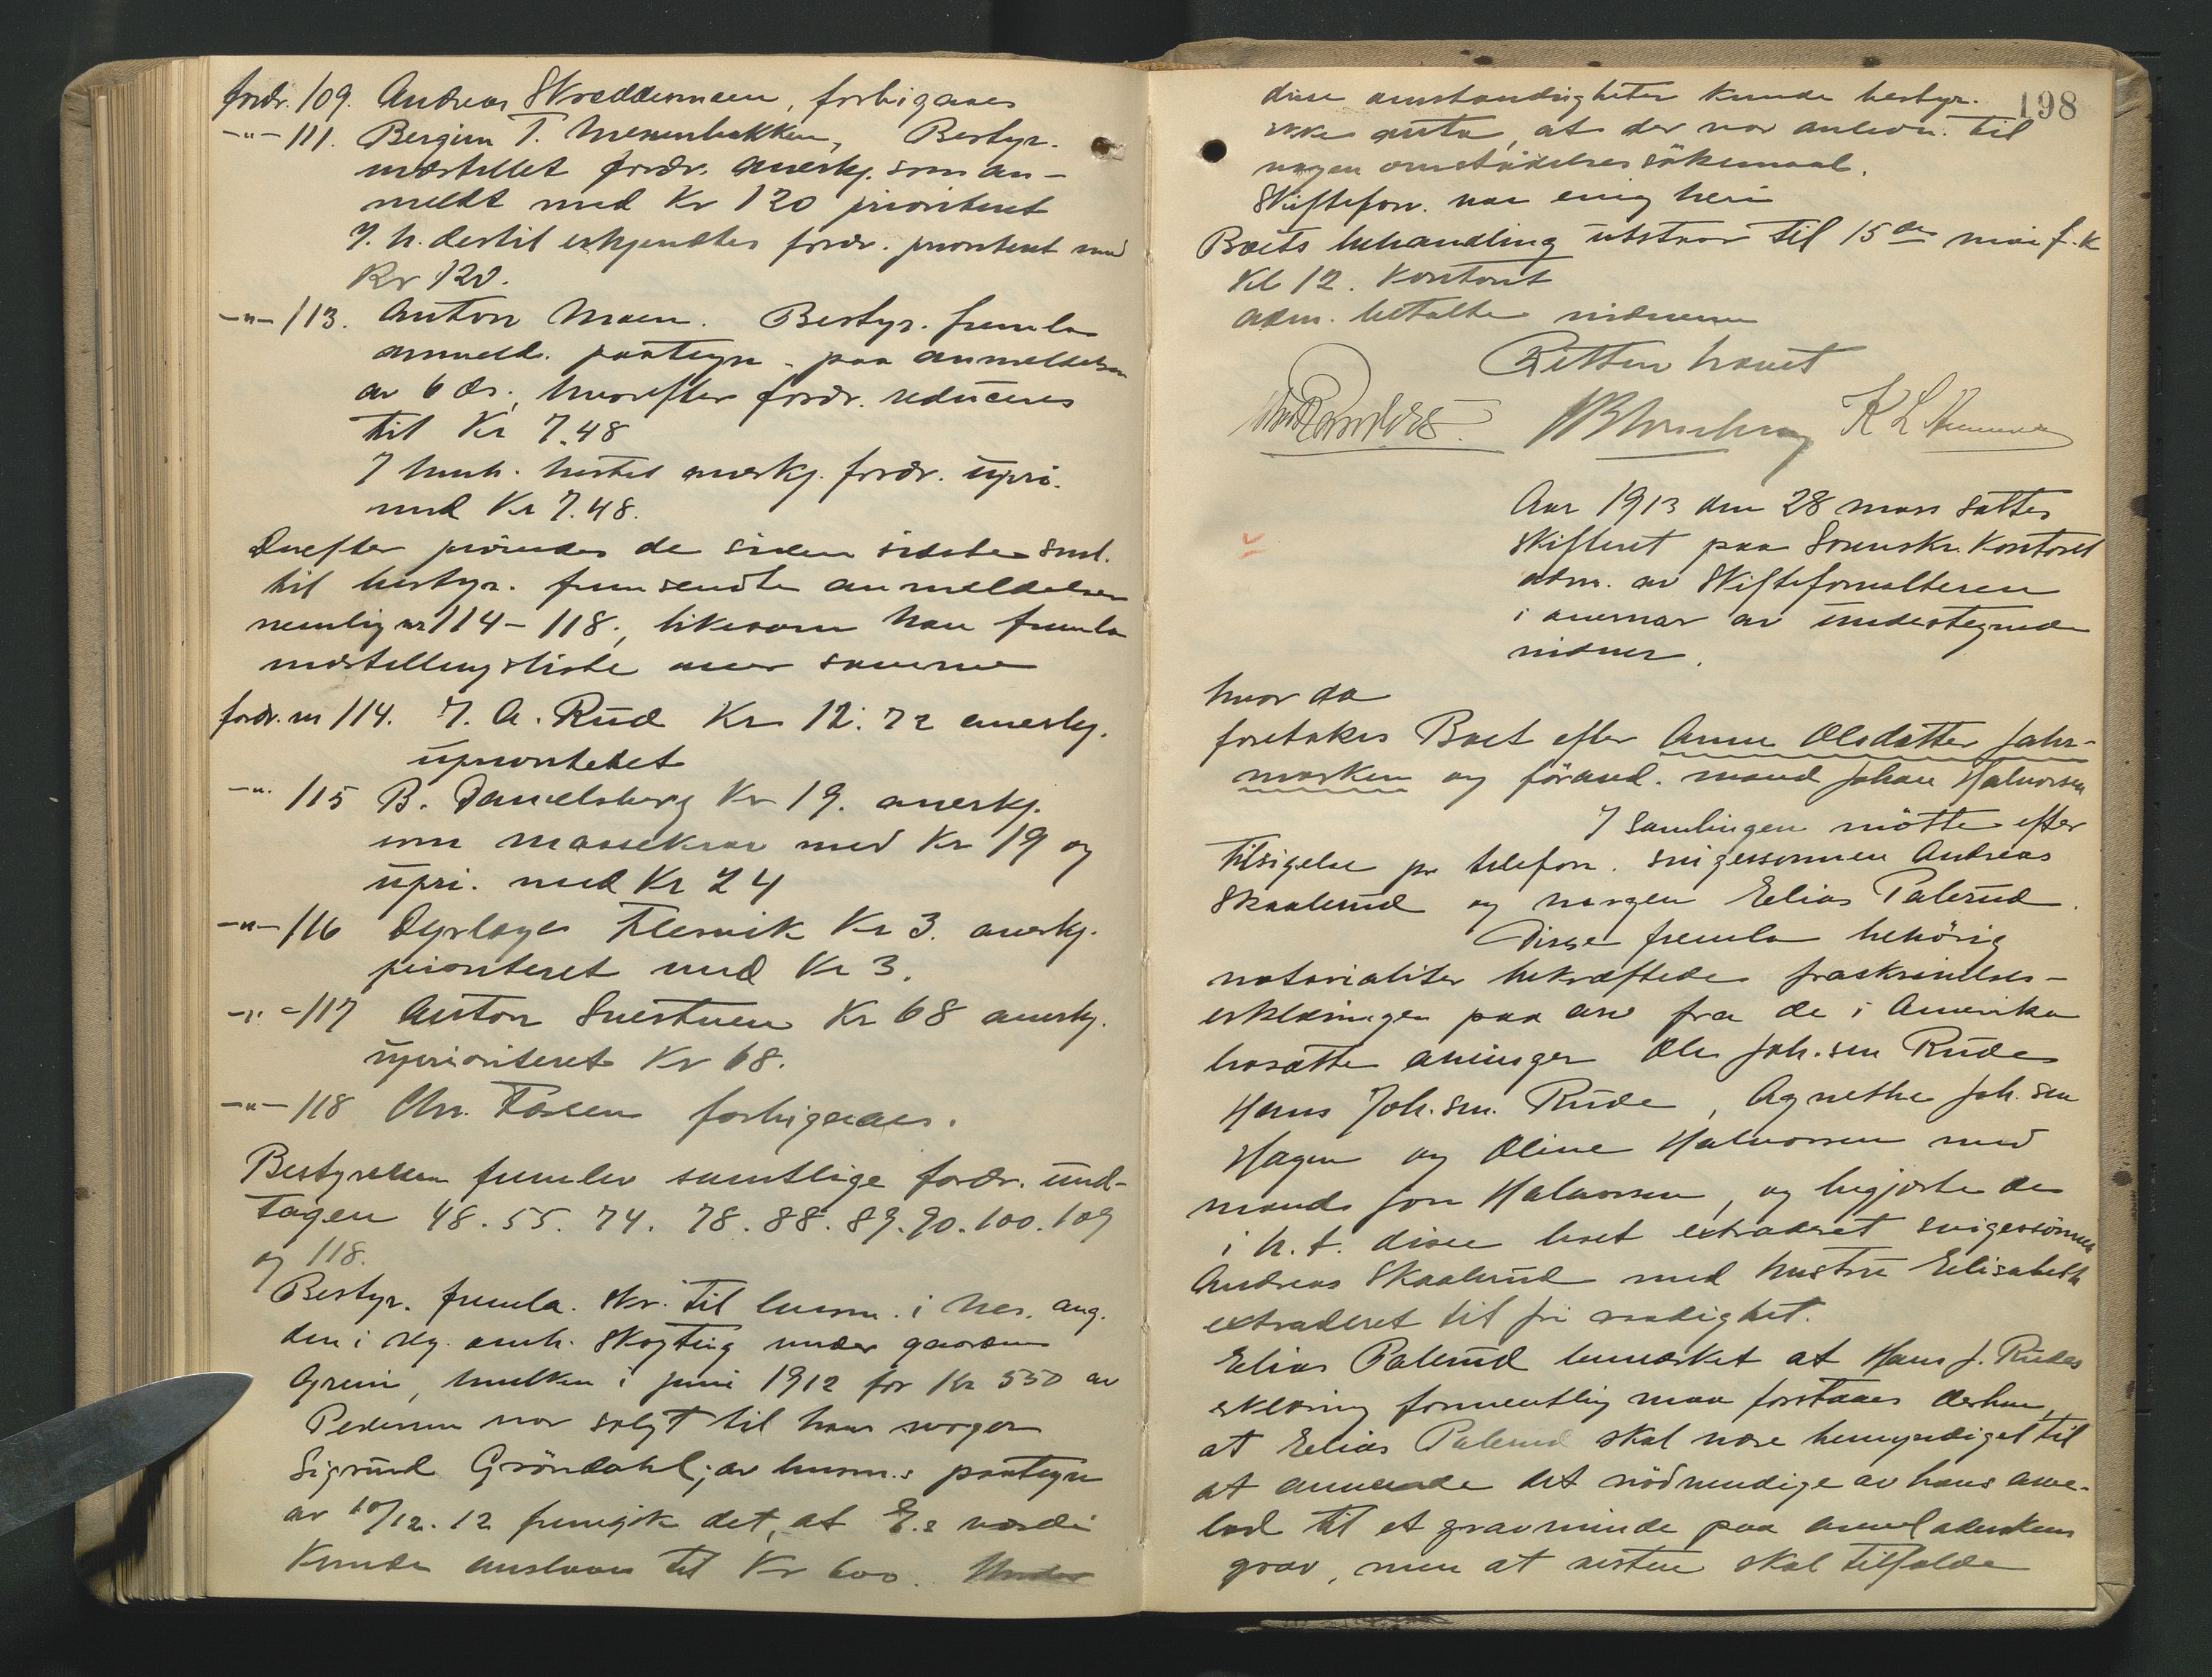 fordr. 109. Andreas Skreddermoen, forbigaaes
-"- 111. Bergium T. Bestyr.
indstillet fordr. anerkj. som an-
meldt med Kr 120 prioritert
I. h. dertil erkjendtes fordr. prioritert med
Kr 120.
-"- 113. Anton Moen. Bestyr. fremla
anmeld. paategn. paa anmeldelsen
av 6 ds., hvorefter fordr. reduceres
til Kr 7.48
I henh. hertil anerkj. fordr. upri.
med Kr 7.48.
Derefter prövedes de siden sidste saml.
til bestyr. fremsendte anmeldelser
nemlig nr 114 - 118, likesom han fremla
indstillingsliste over samme
fordr. nr 114. I. A. Rud Kr 12.72 anerkj.
uprioritetet
-"- 115 B. Danielsberg Kr 19. anerkj.
som massekrav med Kr 19 og
upri. med Kr 24
-"- 116 Dyrlæge Flesvik Kr 3. anerkj.
prioriteret med Kr 3.
-"- 117 Anton Snestuen Kr 68 anerkj.
uprioriteret Kr 68.
-"- 118 Chr. Fossen forbigaaes.
Bestyrelsen fremlev samtlige fordr. und-
tagen 48. 55. 74. 78. 88. 89. 90. 100. 109
og 118.
Bestyr. fremla. skr. til lensm. i Nes. ang.
den i reg. omh. skogteig under gaarden
Grein, hvilken i juni 1912 for Kr 550 av
Pedersen var solgt til hans svoger
Sigrud Gröndahl; av lensm.s paategn
av 10/12. 12 fremgik det, at E.s værdi
kunde anslaaes til Kr 600. Under
198
disse omstændigheter kunde bestyr.
ikke anta, at der var anledn. til
nogen omstödelsessökemaal.
Skifteforv. var enig heri
Boets behandling utstaar til 15de mai f. k
Kl 12. Kontoret
adm. betalte vidnerne
Retten hævet
Aar 1913 den 28 mars sattes
skifteret paa Sorenskr. Kontoret
adm. av Skifteforvalteren
i overvær av undertegnede
vidner.
hvor da
foretokes Boet efter Anne Olsdatter Jahr-
marken og föravd. mand Johan Halvorsen
I samlingen mötte efter
tilsigelse pr telefon. svigersönnen Andreas
Skaalerud og svogeren Elias Palerud.
Disse fremla behörig
notorialiter bekræftede fraskrivelses-
erklæringer paa arv fra de i Amerika
bosatte arvinger Ole Joh.sen Rude
Hans Joh.sen. Rude, Agnethe Joh.sen
Hagen og Oline Halvorsen med
mand Jon Halvorsen, og begjærte de
i h. t. disse boet extraderet svigersönnen
Andreas Skaalerud med hustru Elisabeth
extraderet til fri raadighet.
Elias Palerud bemærket at Hans J. Rudes
erklæring formentlig maa forstaaes derhen,
at Elias Palerud skal være bemyndiget til
at anvende det nödvendige av hans arve-
lod til et gravminde paa arveladerskens
grav, men at resten skal tilfalde